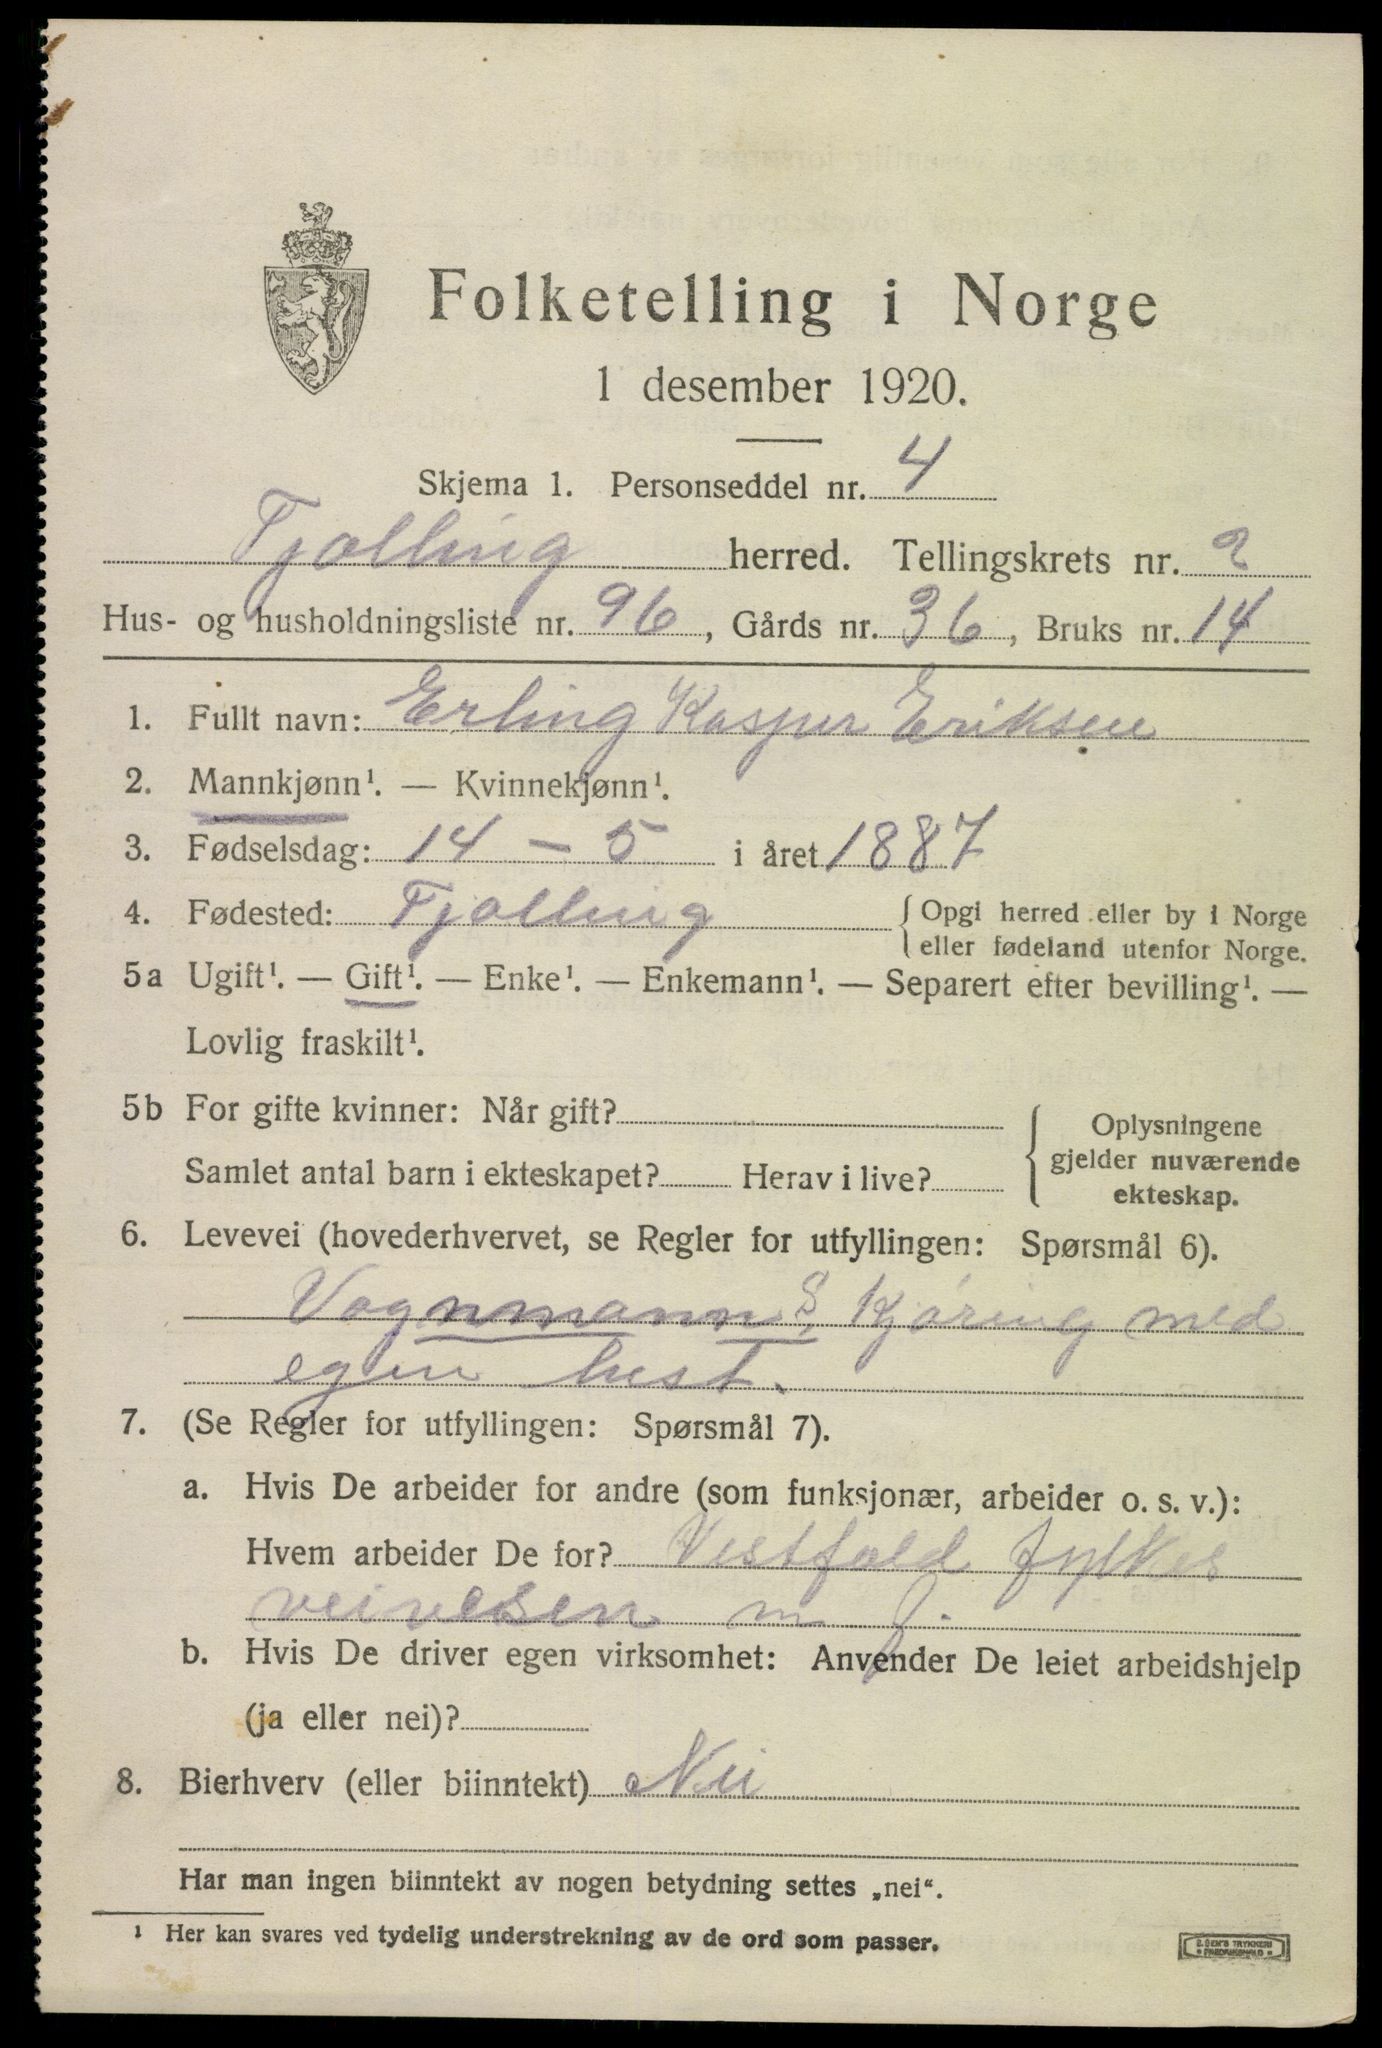 Folketelling i Norge
1 desember 1920.
Skjema 1. Personseddel nr. 4
Tjølling herred. Tellingskrets nr. 2
Hus- og husholdningsliste nr. 96, Gårds nr. 36, Bruks nr. 14
1. Fullt navn: Erling Kasper Eriksen
2. Mannkjønn¹. — Kvinnekjønn¹.
3. Fødselsdag: 14 – 5 i året 1887
4. Fødested: Tjølling {Opgi herred eller by i Norge
eller fødeland utenfor Norge.
5a Ugift¹. — Gift¹. — Enke¹. — Enkemann¹. — Separert efter bevilling¹. —
Lovlig fraskilt¹.
5b For gifte kvinner: Når gift?
Samlet antal barn i ekteskapet? Herav i live?
{ Oplysningene
gjelder nuværende
ekteskap.
6. Levevei (hovederhvervet, se Regler for utfyllingen: Spørsmål 6).
Vognmann S, Kjøring med
egen hest.
7. (Se Regler for utfyllingen: Spørsmål 7).
a. Hvis De arbeider for andre (som funksjonær, arbeider o. s. v.):
Hvem arbeider De for? Vestfold fylkes
veivesen m fl.
b. Hvis De driver egen virksomhet: Anvender De leiet arbeidshjelp
(ja eller nei)?
8. Bierhverv (eller biinntekt) Nei
Har man ingen biinntekt av nogen betydning settes „nei“.
¹ Her kan svares ved tydelig understrekning av de ord som passer.
E. SEM'S TRYKKERI
FREDRIKSHALD